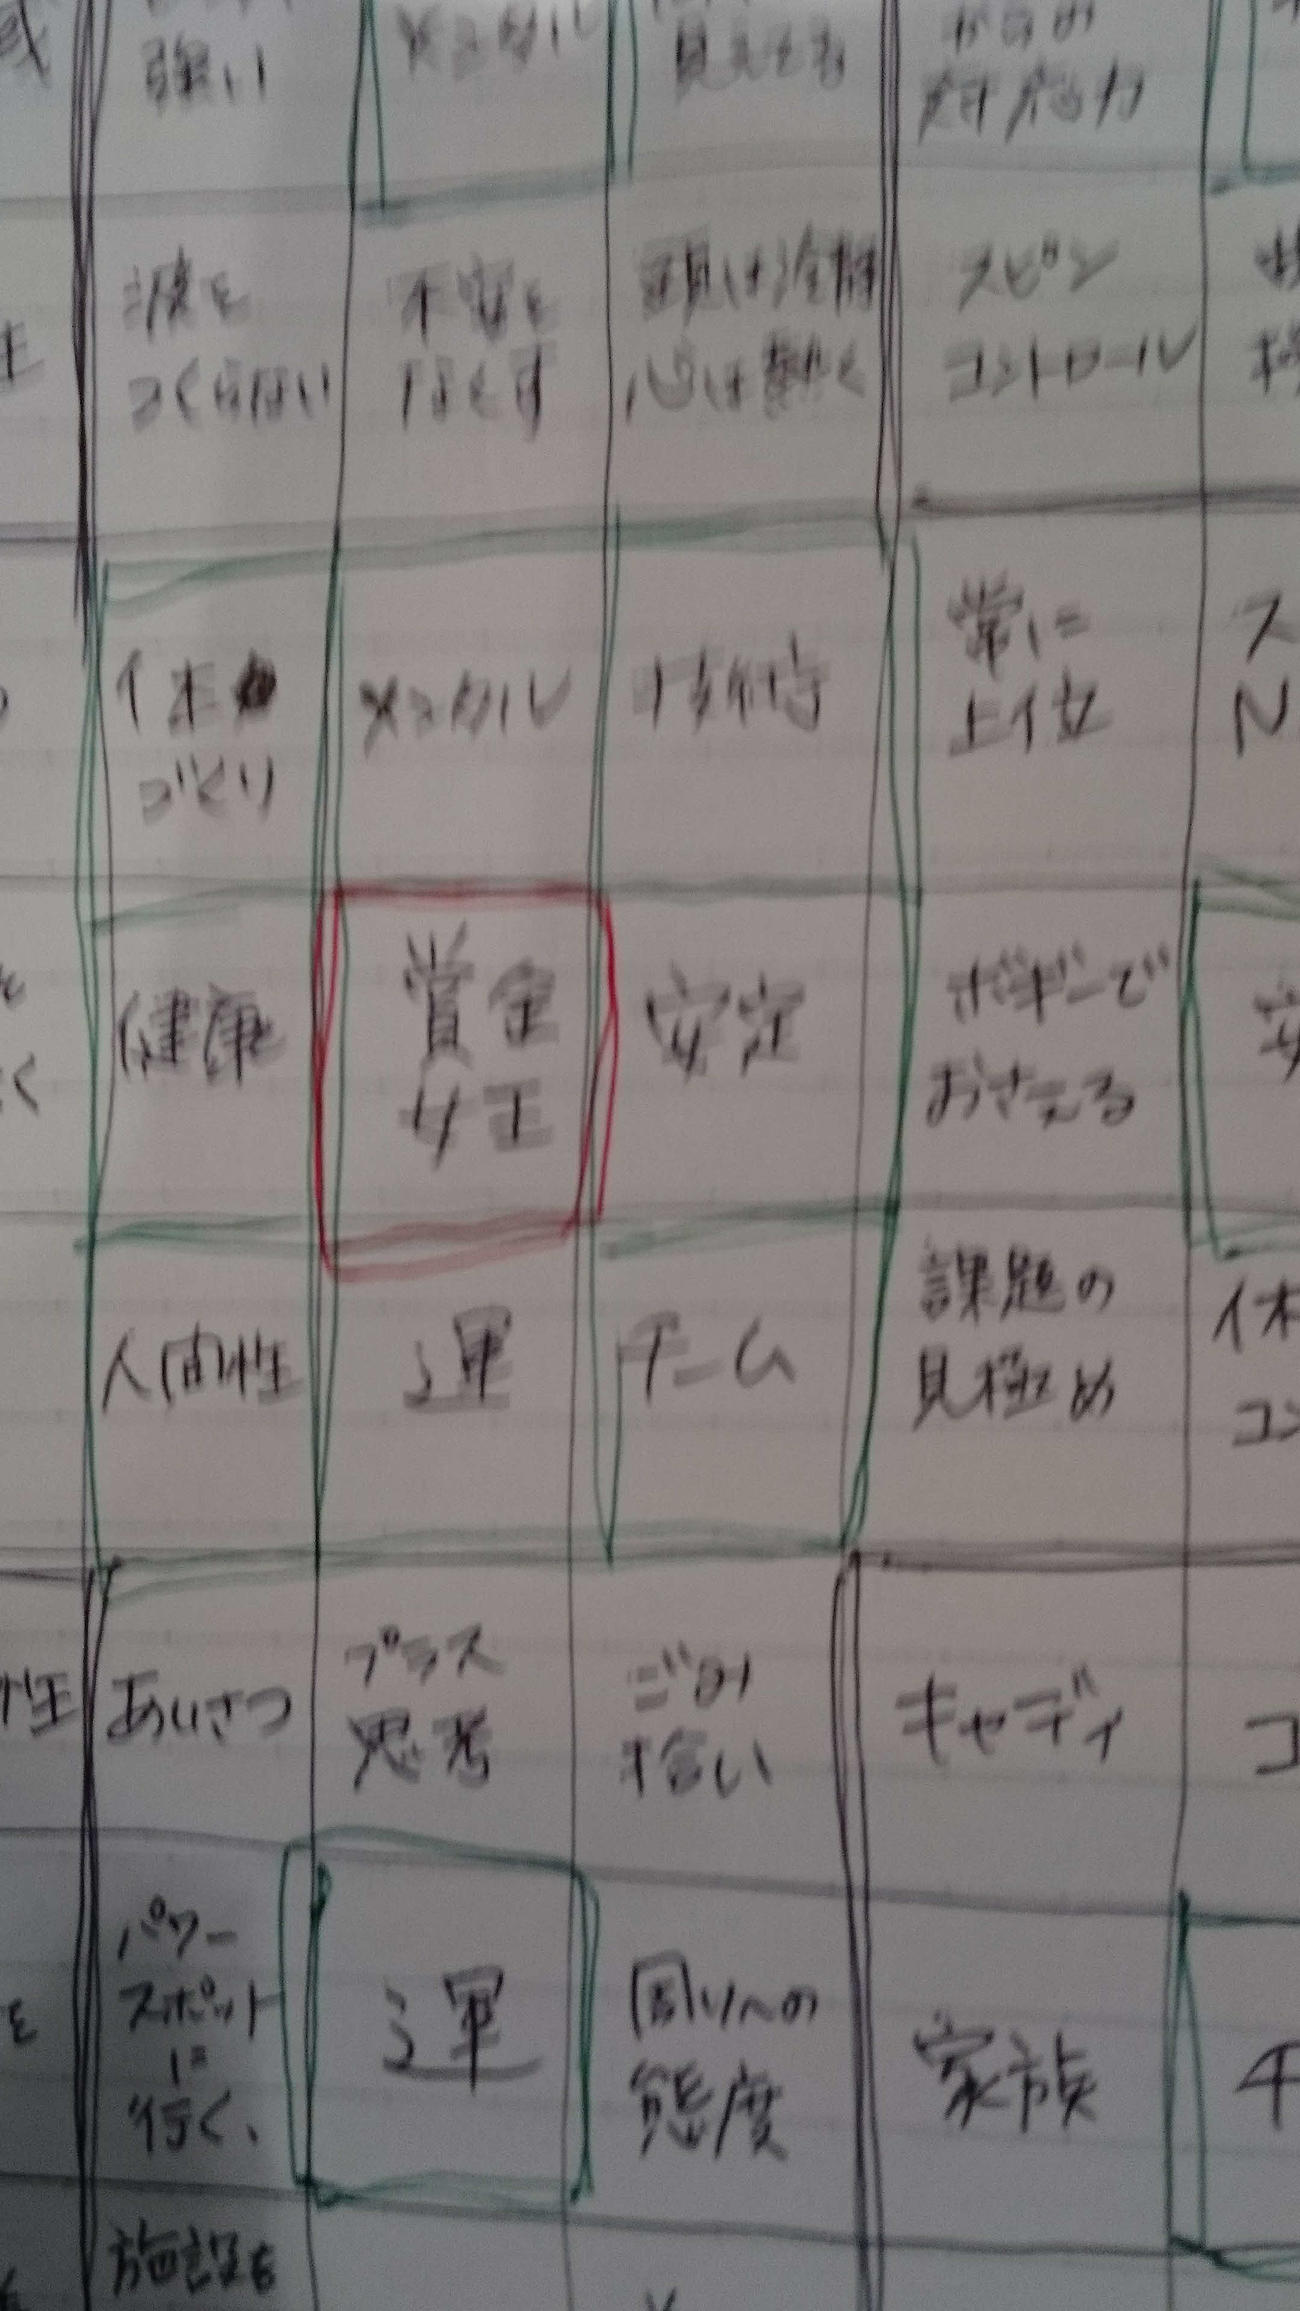 強い
メンタル
見えてる
対応力
波を
つくらない
不安を
なくす
頭は冷静
心は熱く
スピン
コントロール
体
づくり
メンタル
技術
常に
上位
健康
賞金
女王
安定
ボギーで
おさえる
人間性
運
チーム
課題の
見極め
性
あいさつ
プラス
思考
ごみ
拾い
キャディ
パワー
スポット
に
行く、
運
周りへの
態度
家族
施設を